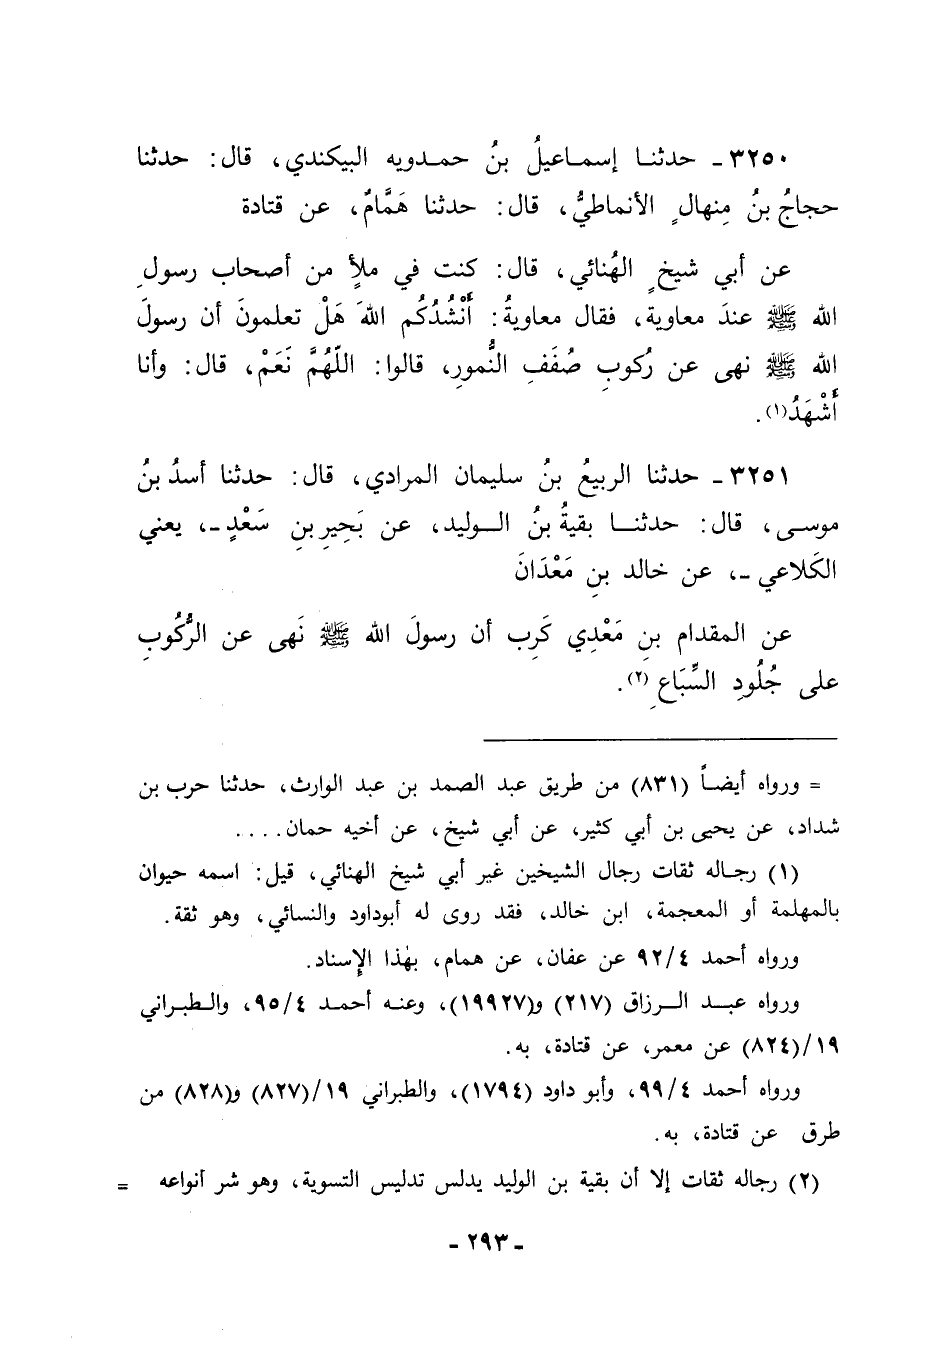 ٣٢٥٠ ـ حدثنا إسماعيلُ بنُ حمدويه البيكندي، قال: حدثنا
حجاجُ بنُ مِنهالٍ الأنماطيُّ، قال: حدثنا هَمَّامٌ، عن قتادة
عن أبي شيخٍ الهُنائي، قال: كنت في ملأٍ من أصحاب رسولِ
الله ﷺ عندَ معاوية، فقال معاويةُ: أَنْشُدُكُم اللهَ هَلْ تعلمونَ أن رسولَ
الله ﷺ نهى عن رُكوبِ صُفَفِ النُّمورِ، قالوا: اللَّهُمَّ نَعَمْ، قال: وأنا
أَشْهَدُ(١).
٣٢٥١ ـ حدثنا الربيعُ بنُ سليمان المرادي، قال: حدثنا أسدُ بنُ
موسى، قال: حدثنا بقيةُ بنُ الوليد، عن بَحِيرِ بنِ سَعْدٍ ـ، يعني
الكَلاعي ـ، عن خالد بنِ مَعْدَانَ
عن المقدام بنِ مَعْدِي كَرِب أن رسولَ الله ﷺ نَهى عن الرُّكُوبِ
على جُلُودِ السِّبَاعِ(٢).
= ورواه أيضاً (٨٣١) من طريق عبد الصمد بن عبد الوارث، حدثنا حرب بن
شداد، عن يحيى بن أبي كثير، عن أبي شيخ، عن أخيه حمان....
(١) رجاله ثقات رجال الشيخين غير أبي شيخ الهنائي، قيل: اسمه حيوان
بالمهلمة أو المعجمة، ابن خالد، فقد روى له أبوداود والنسائي، وهو ثقة.
ورواه أحمد ٩٢/٤ عن عفان، عن همام، بهٰذا الإسناد.
ورواه عبد الرزاق (٢١٧) و(١٩٩٢٧)، وعنه أحمد ٩٥/٤، والطبراني
١٩/(٨٢٤) عن معمر، عن قتادة، به.
ورواه أحمد ٩٩/٤، وأبو داود (١٧٩٤)، والطبراني ١٩/(٨٢٧) و(٨٢٨) من
طرق عن قتادة، به.
(٢) رجاله ثقات إلا أن بقية بن الوليد يدلس تدليس التسوية، وهو شر أنواعه =
ـ ٢٩٣ ـ